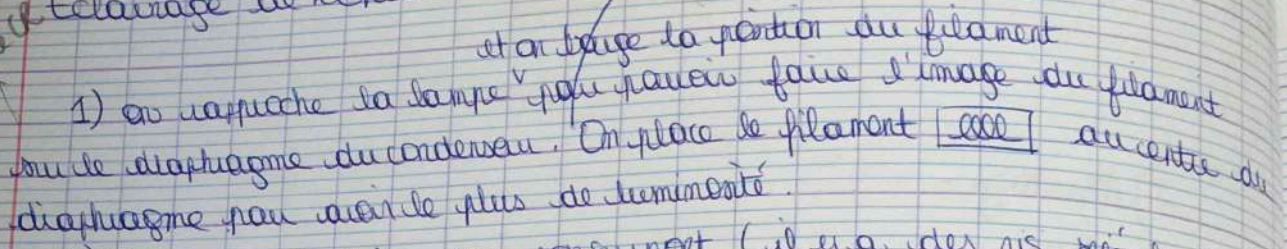 Eclairage de
et on bouge la position du filament
1) on rapproche la lampe pour pouvoir faire l'image du filament
sur le diaphragme du condenseur. On place le filament au centre du
diaphragme pour avoir le plus de luminosité.
(il y a des